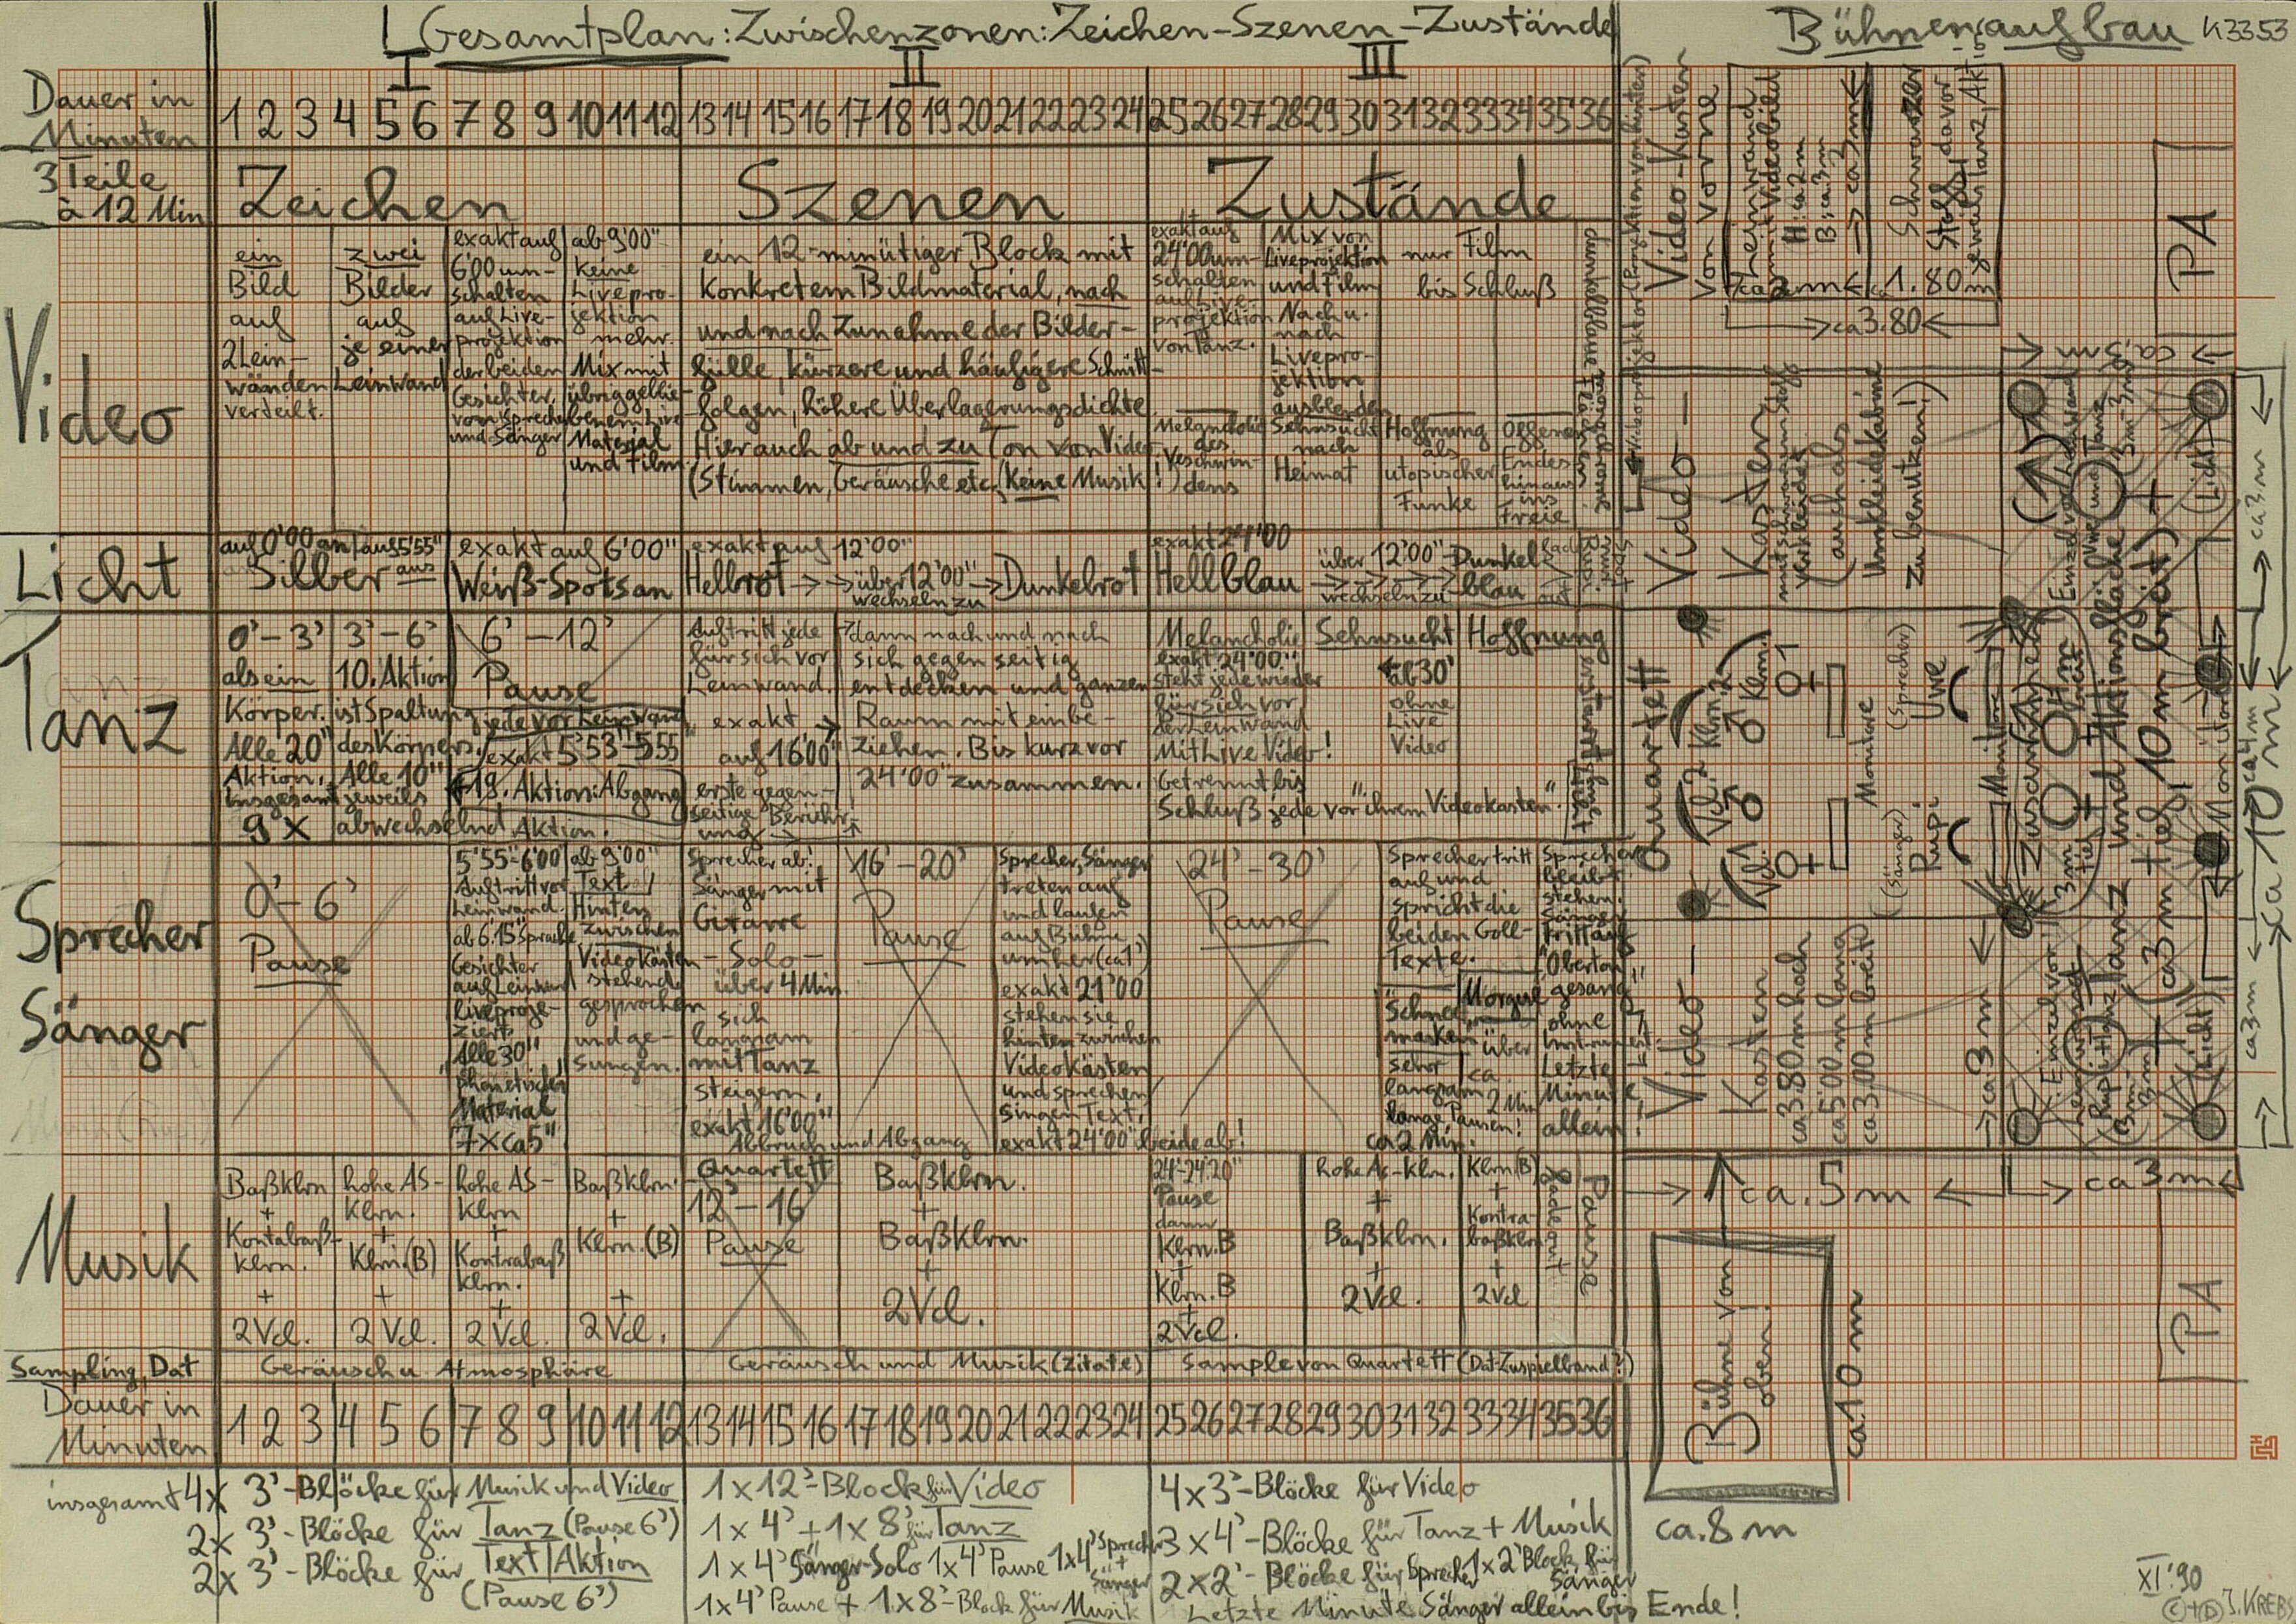 Gesamtplan: Zwischenzonen: Zeichen-Szenen-Zustände
Bühnenaufbau K3353
I II III
Dauer in
Minuten
1 2 3 4 5 6 7 8 9 10 11 12 13 14 15 16 17 18 19 20 21 22 23 24 25 26 27 28 29 30 31 32 33 34 35 36
3 Teile
à 12 Min
Zeichen
Szenen
Zustände
Video
ein
Bild
auf
2 Lein-
wänden
verteilt.
zwei
Bilder
auf
je einer
Leinwand
exakt auf
6'00 um-
schalten
auf Live-
projektion
der beiden
Gesichter
von Sprecher
und Sänger
ab 9'00"
keine
Livepro-
jektion
mehr.
Mix mit
übriggeblie-
benem Live
Material
und Film.
ein 12-minütiger Block mit
konkretem Bildmaterial, nach
und nach Zunahme der Bilder-
fülle, kürzere und häufigere Schnitt-
folgen, höhere Überlagerungsdichte
Hier auch ab und zu Ton von Video
(Stimmen, Geräusche etc. Keine Musik!)
exakt auf
24'00 um-
schalten
auf Live-
projektion
von Tanz.
Melancholie
des
Verschwin-
dens
Mix von
Liveprojektion
und Film
Nach u.
nach
Livepro-
jektion
ausblenden
Sehnsucht
nach
Heimat
nur Film
bis Schluß
Hoffnung
als
utopischer
Funke
Offenes
Endes
hinaus
ins
Freie
Licht
auf 0'00 an
auf 5'55"
aus
Silber
exakt auf 6'00"
Weiß-Spots an
exakt auf 12'00"
Hellrot → → über 12'00" → Dunkelrot
wechseln zu
exakt 24'00
Hellblau
über 12'00"
wechseln zu
Dunkel
blau
Tanz
0'-3'
als ein
Körper.
Alle 20"
Aktion,
insgesamt
9x
3'-6'
10. Aktion
ist Spaltung
des Körpers.
Alle 10"
jeweils
abwechselnd Aktion.
6'-12'
Pause
jede vor Leinwand
exakt 5'53"-555
19. Aktion: Abgang
Auftritt jede
für sich vor
Leinwand.
exakt
auf 16'00"
erste gegen-
seitige Berühr-
ung
dann nach und nach
sich gegenseitig
entdecken und ganzen
Raum mit einbe-
ziehen. Bis kurz vor
24'00" zusammen.
Melancholie
exakt 24'00"
steht jede wieder
für sich vor
der Leinwand
Mit Live Video!
Getrennt bis
Schluß jede vor "ihrem Videokasten".
Sehnsucht
ab 30'
ohne
Live
Video
Hoffnung
Sprecher
Sänger
0'-6'
Pause
5'55"-6'00
Auftritt vor
Leinwand.
ab 6'15" Sprache
Gesichter
auf Leinwand
liveproje-
ziert
Alle 30"
"phonetisches"
Material
7 x ca 5"
ab 9'00"
Text
Hinten
zwischen
Videokästen
stehend
gesprochen
und ge-
sungen.
Sprecher ab!
Sänger mit
Gitarre
-Solo-
über 4 Min.
sich
langsam
mit Tanz
steigern,
exakt 16'00"
Abbruch und Abgang
16'-20'
Pause
Sprecher, Sänger
treten auf
und laufen
auf Bühne
umher (ca 1')
exakt 21'00
stehen sie
hinten zwischen
Videokästen
und sprechen
singen Text,
exakt 24'00" beide ab!
24'-30'
Pause
Sprecher tritt
auf und
spricht die
beiden Goll-
Texte.
"Schnee
masken"
sehr
langsam
lange Pausen!
ca 2 Min.
"Morgue"
über
ca.
2 Min
Sprecher
bleibt
stehen.
Sänger
tritt auf
"Oberton
gesang"
ohne
Instrument.
Letzte
Minute
allein!
Musik
Baßklrn
+
Kontabaß-
klrn.
+
2 Vcl.
hohe AS-
Klrn.
+
Klrn.(B)
+
2 Vcl.
hohe AS-
Klrn
+
Kontrabaß
klrn.
+
2 Vcl.
Baßklrn.
+
Klrn.(B)
+
2 Vcl.
Quartett
12'-16'
Pause
Baßklrn.
+
Baßklrn.
+
2 Vcl.
24'-24'20"
Pause
dann
Klrn.B
+
Klrn.B
+
2 Vcl.
hohe As-Klrn.
+
Baßklrn.
+
2 Vcl.
Klrn.(B)
+
Kontra-
baßklrn
+
2 Vcl
Pause
Sampling, Dat
Geräusch u. Atmosphäre
Geräusch und Musik (Zitate)
Sample von Quartett (Dat-Zuspielband?)
Dauer in
Minuten
1 2 3 4 5 6 7 8 9 10 11 12 13 14 15 16 17 18 19 20 21 22 23 24 25 26 27 28 29 30 31 32 33 34 35 36
insgesamt 4x 3'-Blöcke für Musik und Video
2x 3'-Blöcke für Tanz (Pause 6')
2x 3'-Blöcke für Text/Aktion
(Pause 6')
1x12'-Block für Video
1x4' + 1x8' für Tanz
1x4' Sänger-Solo 1x4' Pause 1x4' Sprecher
+
Sänger
1x4' Pause + 1x8'-Block für Musik
4x3'-Blöcke für Video
3x4'-Blöcke für Tanz + Musik
2x2'-Blöcke für Sprecher 1x2' Block für
Sänger
Letzte Minute Sänger allein bis Ende!
Video-Kasten
von vorne
Leinwand
mit Videobild
H: ca 2 m
B: ca 3 m
ca 3 m
Schwarzer
Stoff, davor
jeweils Tanz, Aktion
1.80 m
ca 3.80
PA
Video-
Kasten
mit schwarzem Stoff
verkleidet
(auch als
Umkleidekabine
zu benutzen!)
Quartett
Vcl. 2 Klrn. 2
Vcl. 1 Klrn. 1
Monitore
(Sprecher)
Uwe
(Sänger)
Rupi
Monitore
Tanz und Aktionsfläche
(ca 3 m tief, 10 m breit)
(Licht)
ca 3 m
ca 4 m
ca 10 m
ca 3 m
Video-
Kasten
ca 3.80 m hoch
ca 5.00 m lang
ca 3.00 m breit
ca 3 m
(Licht)
ca. 5 m
ca 3 m
Bühne von
oben!
ca 10 m
ca. 8 m
PA
XI '90
J. KREBS